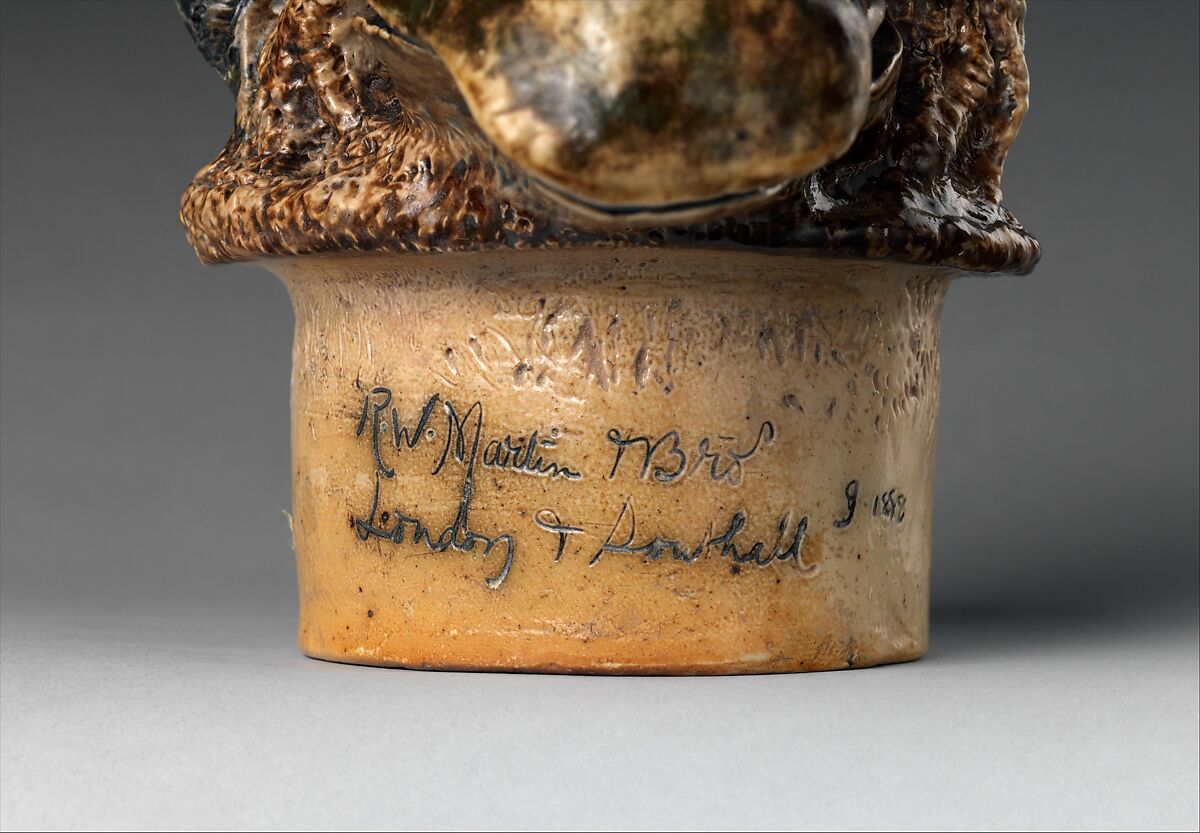 R.W. Martin & Bros
London & Southall
9. 1883